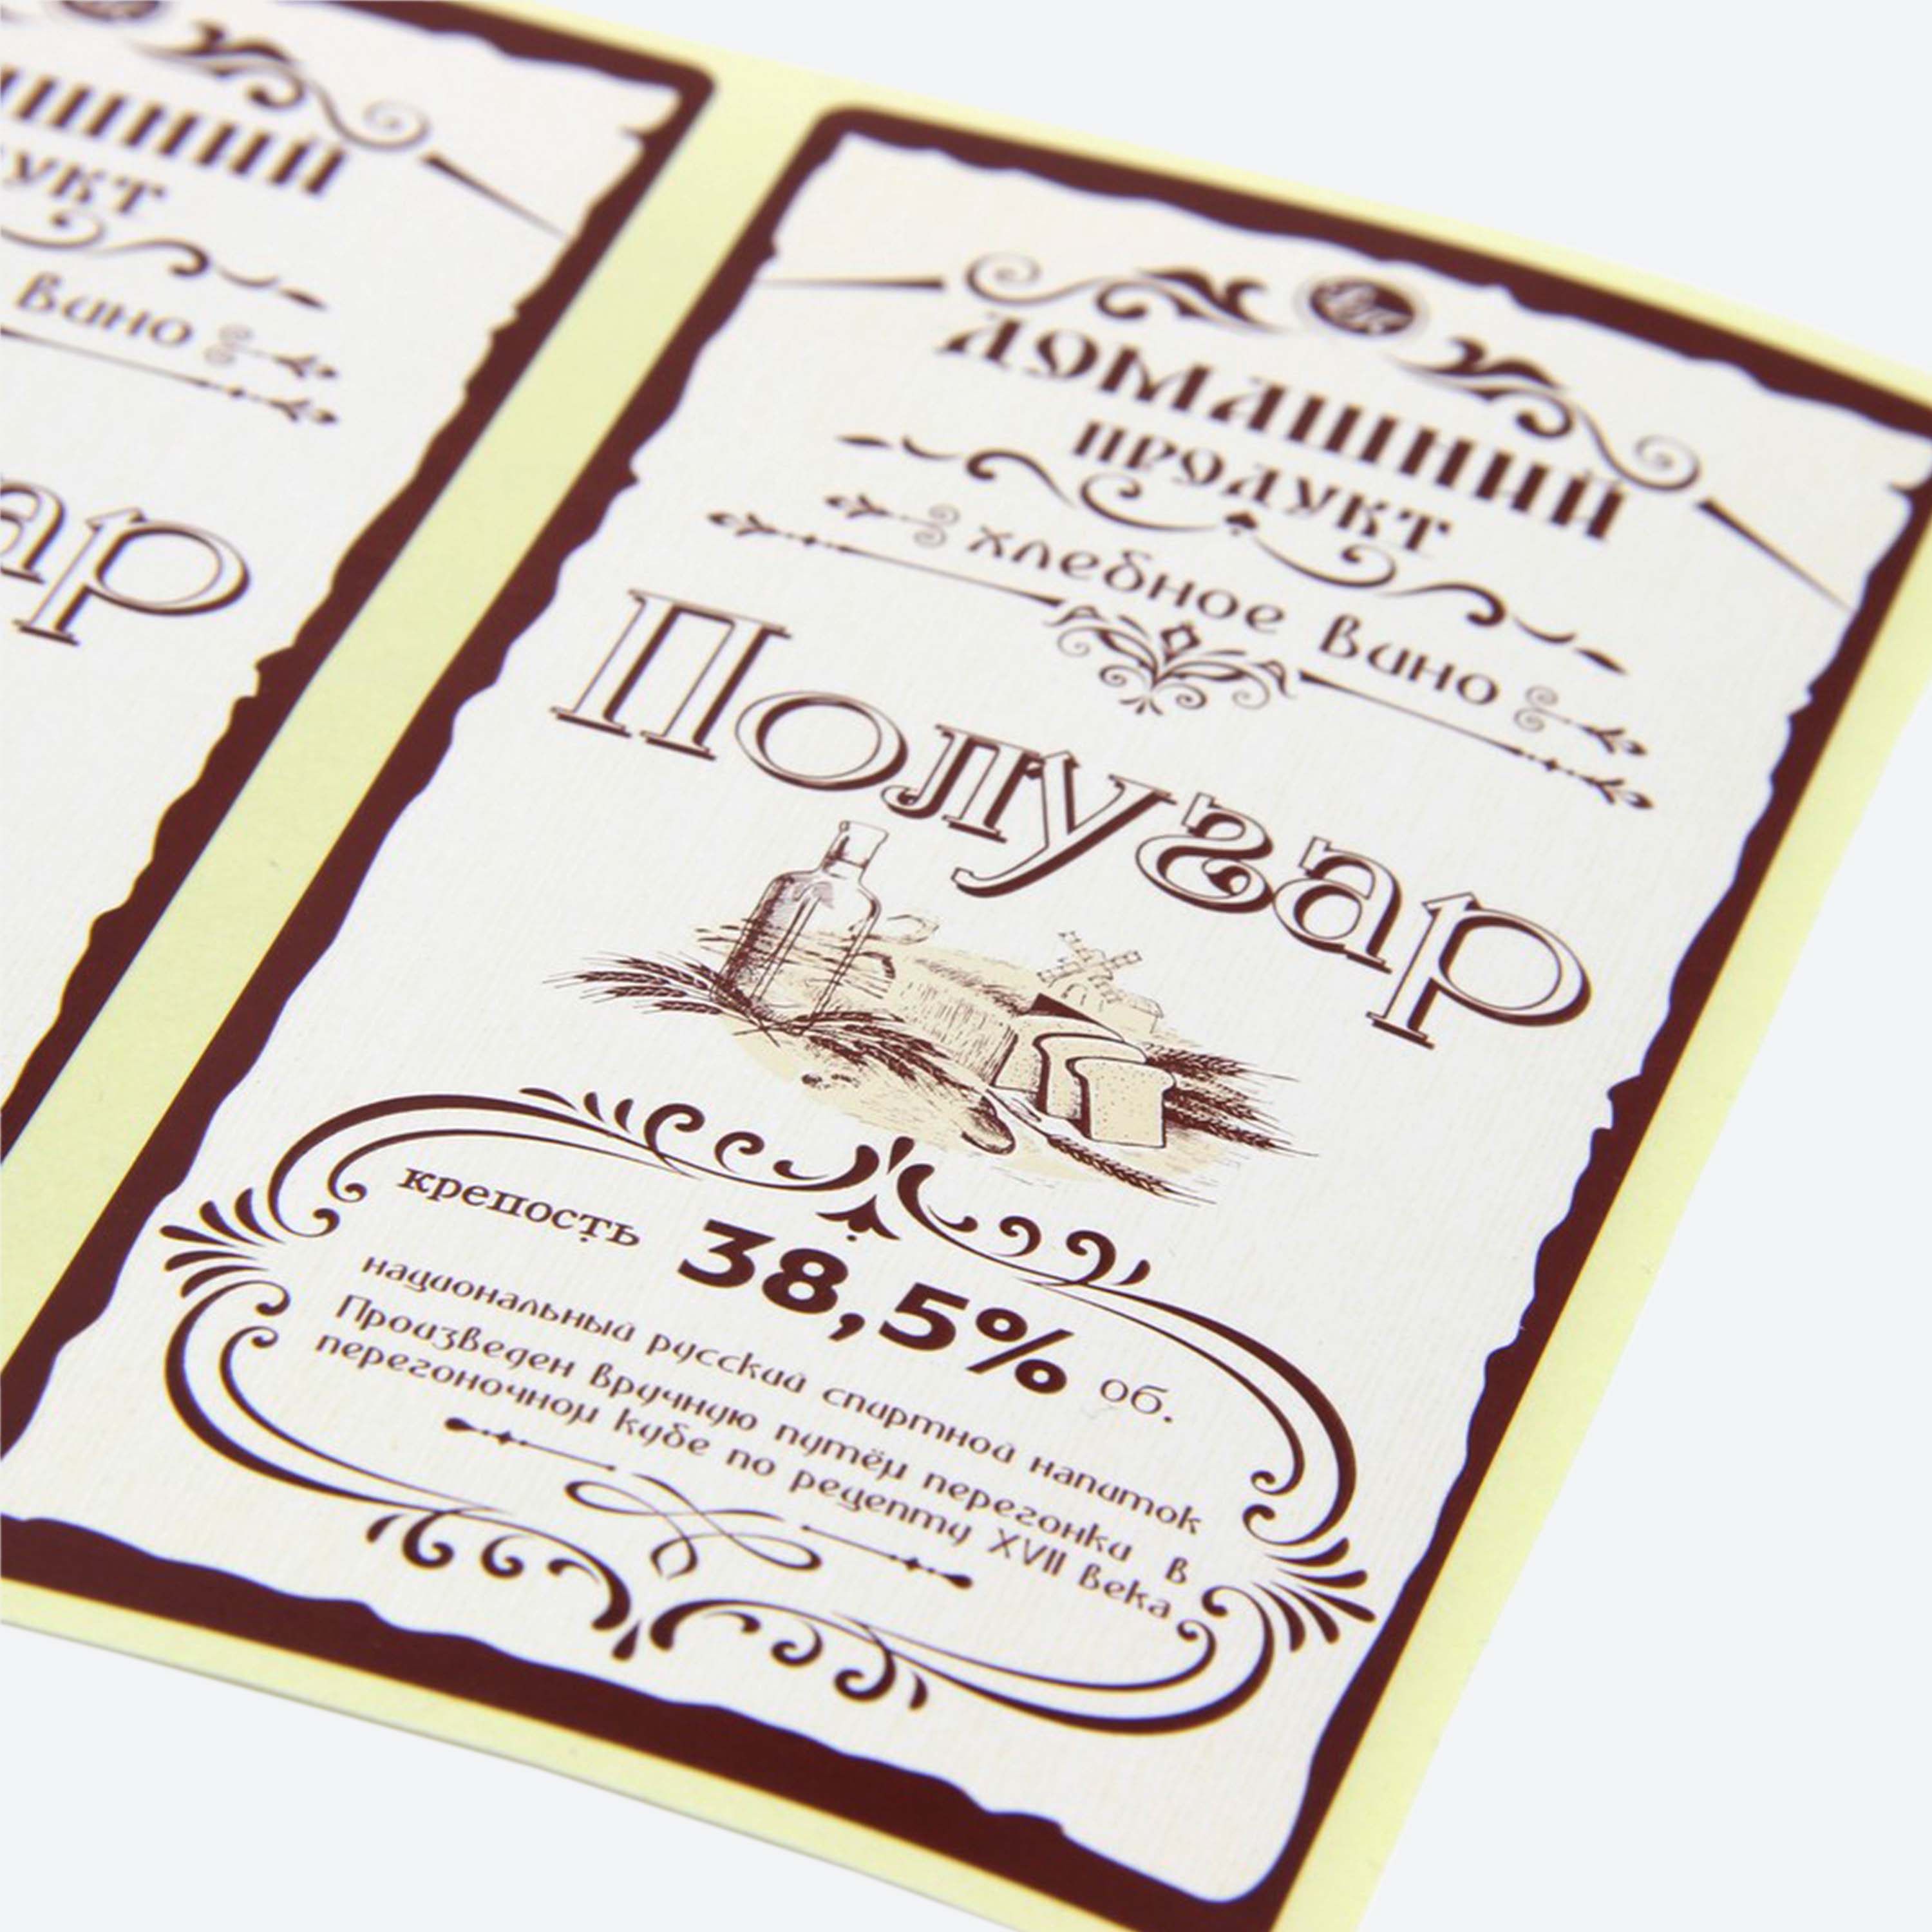 ДОМАШНИЙ
ПРОДУКТ
хлебное вино
Полугар
крепость 38,5% об.
национальный русский спиртной напиток
Произведен вручную путём перегонки в
перегоночном кубе по рецепту XVII века
вино